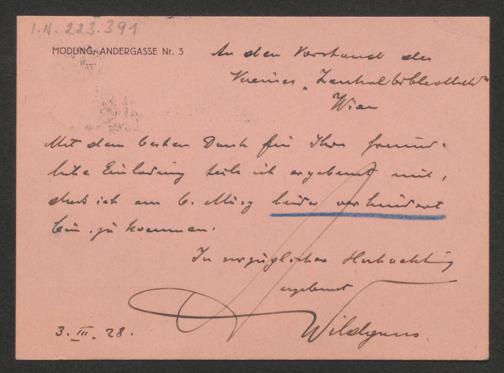 I.N. 223.391
MÖDLING, ANDERGASSE Nr. 3
An den Vorstand des
Vereines „Zentralbibliothek“
Wien
Mit dem besten Dank für Ihre freund-
liche Einladung teile ich ergebenst mit,
daß ich am 6. März leider verhindert
bin zu kommen.
In vorzüglicher Hochachtung
ergebenst
Wildgans
3. III. 28.